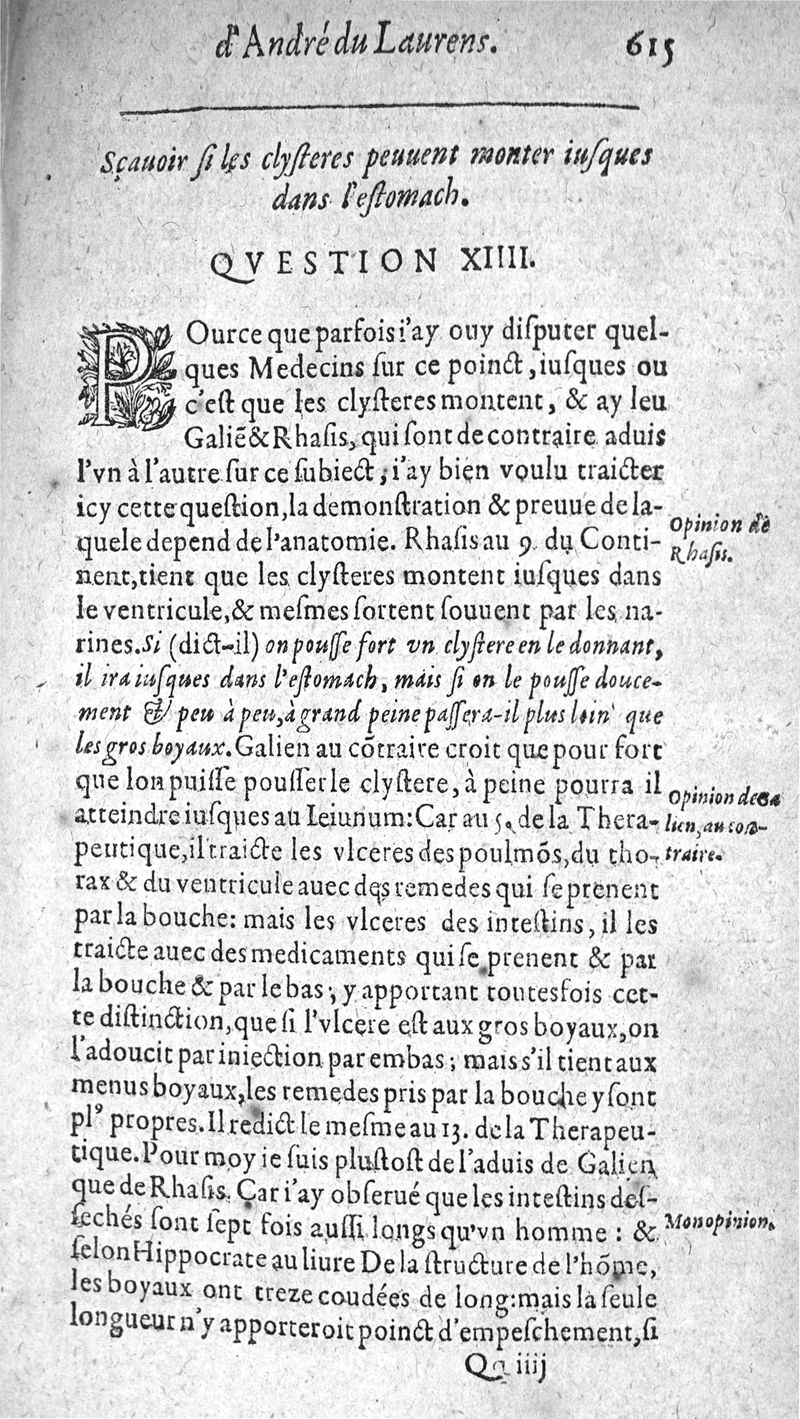 d'André du Laurens. 615
Sçauoir ſi les clyſteres peuuent monter iuſques
dans l'eſtomach.
QVESTION XIIII.
POurce que parfois i'ay ouy diſputer quel-
ques Medecins ſur ce poinct, iuſques ou
c'eſt que les clyſteres montent, & ay leu
Galiē & Rhaſis, qui ſont de contraire aduis
l'vn à l'autre ſur ce ſubiect, i'ay bien voulu traicter
icy cette queſtion, la demonſtration & preuue de la-
quele depend de l'anatomie. Rhaſis au 9. du Conti-
Opinion de
Rhaſis.
nent, tient que les clyſteres montent iuſques dans
le ventricule, & meſmes ſortent ſouuent par les na-
rines. Si (dict-il) on pouſſe fort vn clyſtere en le donnant,
il ira iuſques dans l'eſtomach, mais ſi on le pouſſe douce-
ment & peu à peu, à grand peine paſſera-il plus loin que
les gros boyaux. Galien au cōtraire croit que pour fort
que lon puiſſe pouſſer le clyſtere, à peine pourra il
Opinion de Ga
lien, au con-
traire.
atteindre iuſques au Ieiunum: Car au 5. de la Thera-
peutique, il traicte les vlceres des poulmōs, du tho-
rax & du ventricule auec des remedes qui ſe prenent
par la bouche: mais les vlceres des inteſtins, il les
traicte auec des medicaments qui ſe prenent & par
la bouche & par le bas; y apportant toutesfois cet-
te diſtinction, que ſi l'vlcere eſt aux gros boyaux, on
l'adoucit par iniection par embas; mais s'il tient aux
menus boyaux, les remedes pris par la bouche y ſont
plꝰ propres. Il redict le meſme au 13. de la Therapeu-
tique. Pour moy ie ſuis pluſtoſt de l'aduis de Galien
que de Rhaſis. Car i'ay obſerué que les inteſtins deſ-
ſechés ſont ſept fois auſſi longs qu'vn homme: &
Mon opinion.
ſelon Hippocrate au liure De la ſtructure de l'hōme,
les boyaux ont treze coudées de long: mais la ſeule
longueur n'y apporteroit poinct d'empeſchement, ſi
Qq iiij